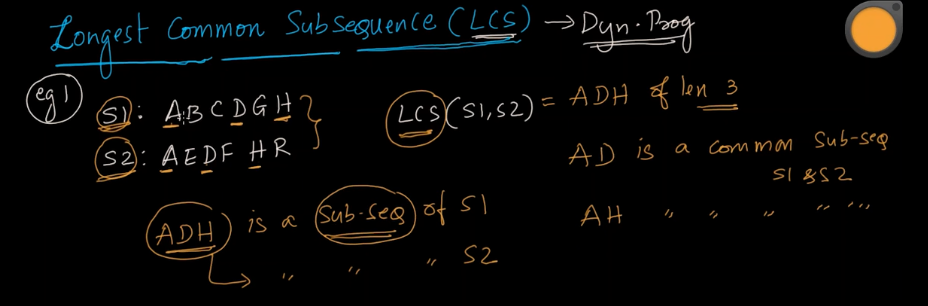 Longest Common Subsequence (LCS) → Dyn. Prog
eg 1
S1: A B C D G H
S2: A E D F H R
LCS(S1, S2) = ADH of len 3
AD is a common Sub-seq
S1 & S2
AH " " " " "
ADH is a Sub-seq of S1
" " " S2